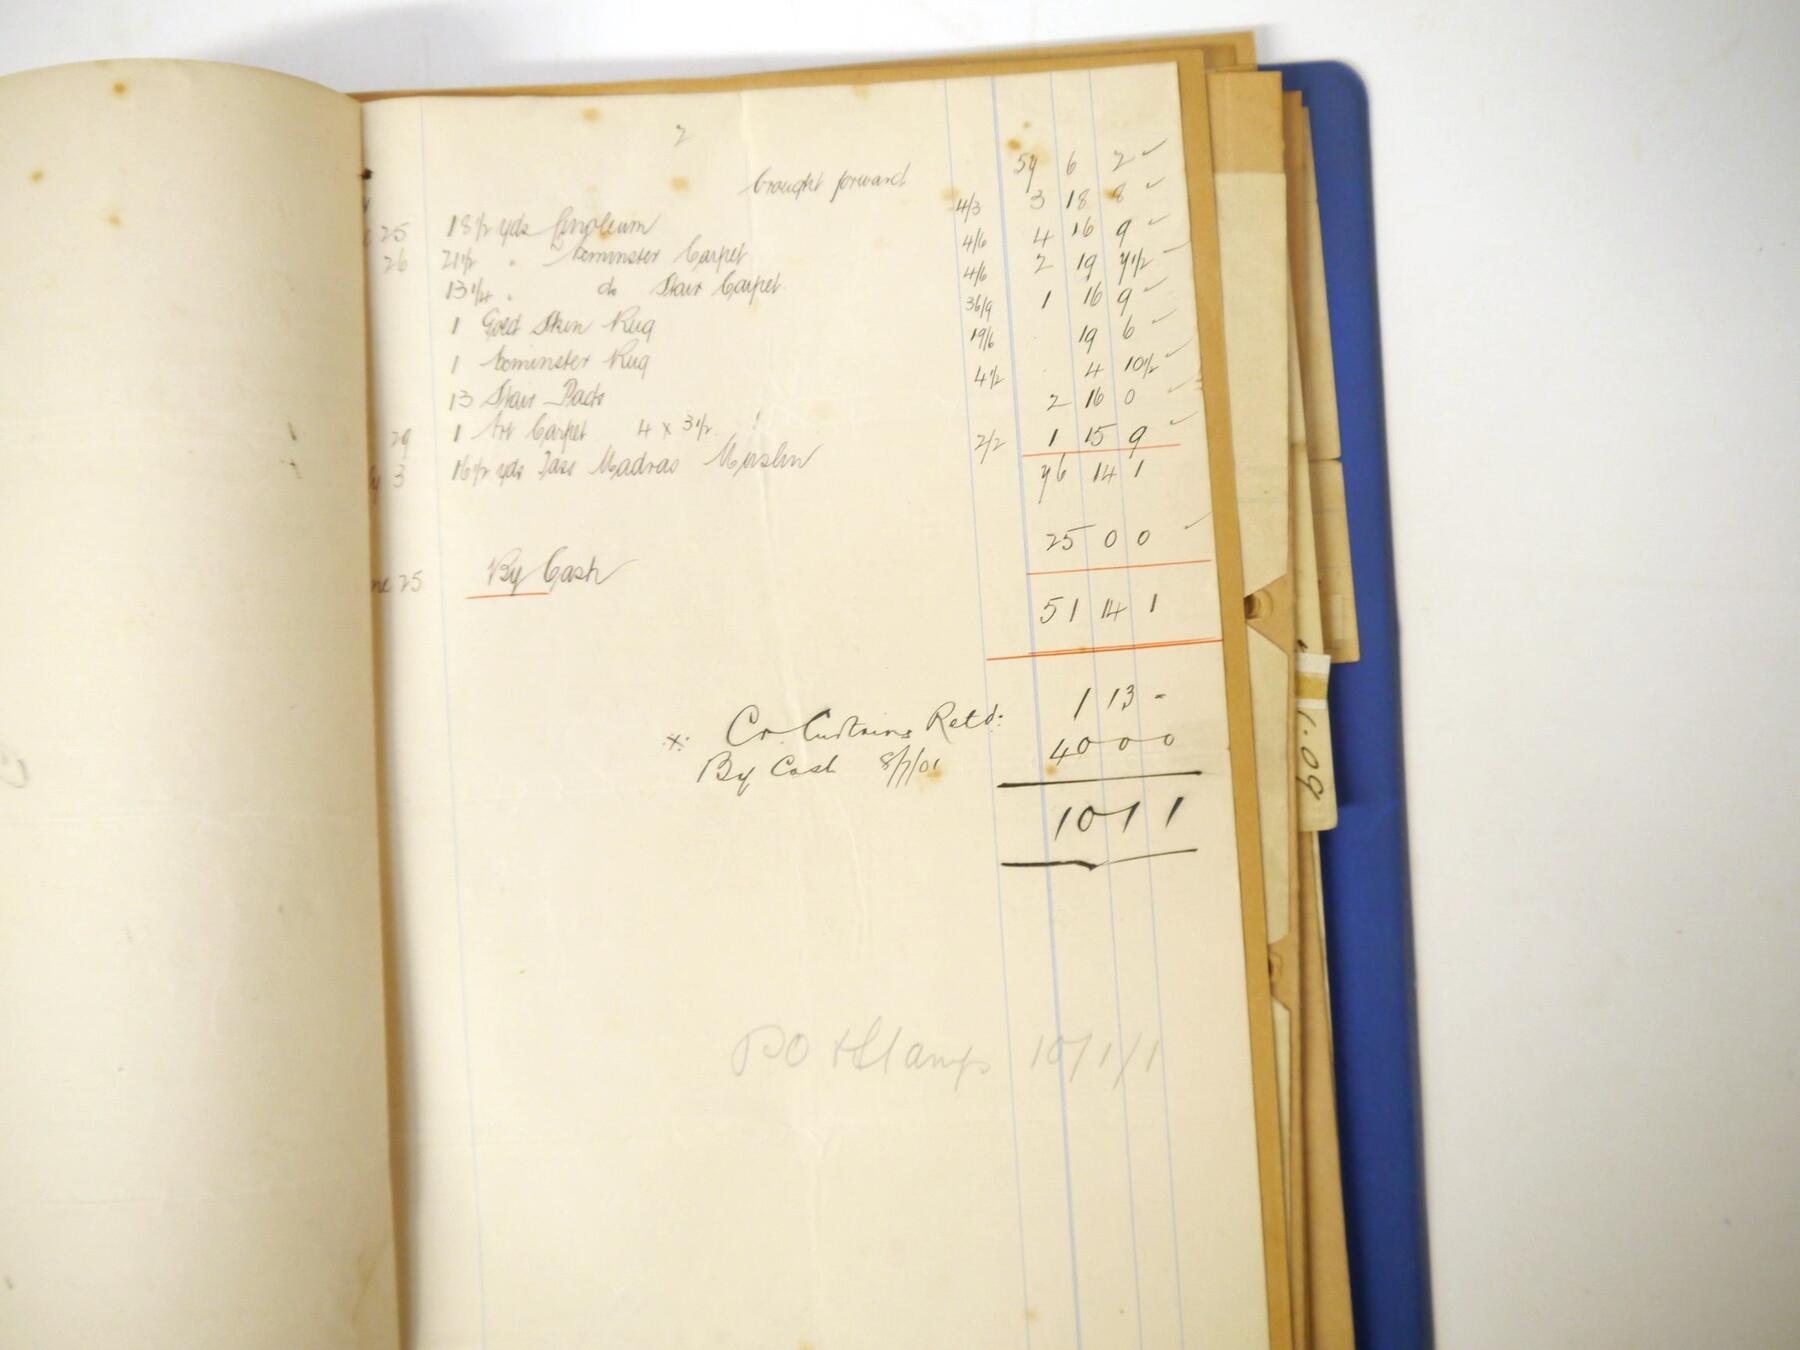 2
brought forward 57 6 2
25 18 1/2 yds Linoleum 4/3 3 18 8
26 21 1/2 " Axminster Carpet 4/6 4 16 9
13 1/4 " do Stair Carpet 4/6 2 19 7 1/2
1 Gold Skin Rug 36/9 1 16 9
1 Axminster Rug 19/6 19 6
13 Stair Pads 4 1/2 4 10 1/2
29 1 Art Carpet 4 x 3 1/2 2 16 0
3 16 1/2 yds Madras Muslin 2/2 1 15 9
76 14 1
25 By Cash 25 0 0
51 14 1
Cr. Curtains Retd: 1 13 -
By Cash 8/7/01 40 0 0
10 1 1
PO + Stamps 10/1/1
1.09